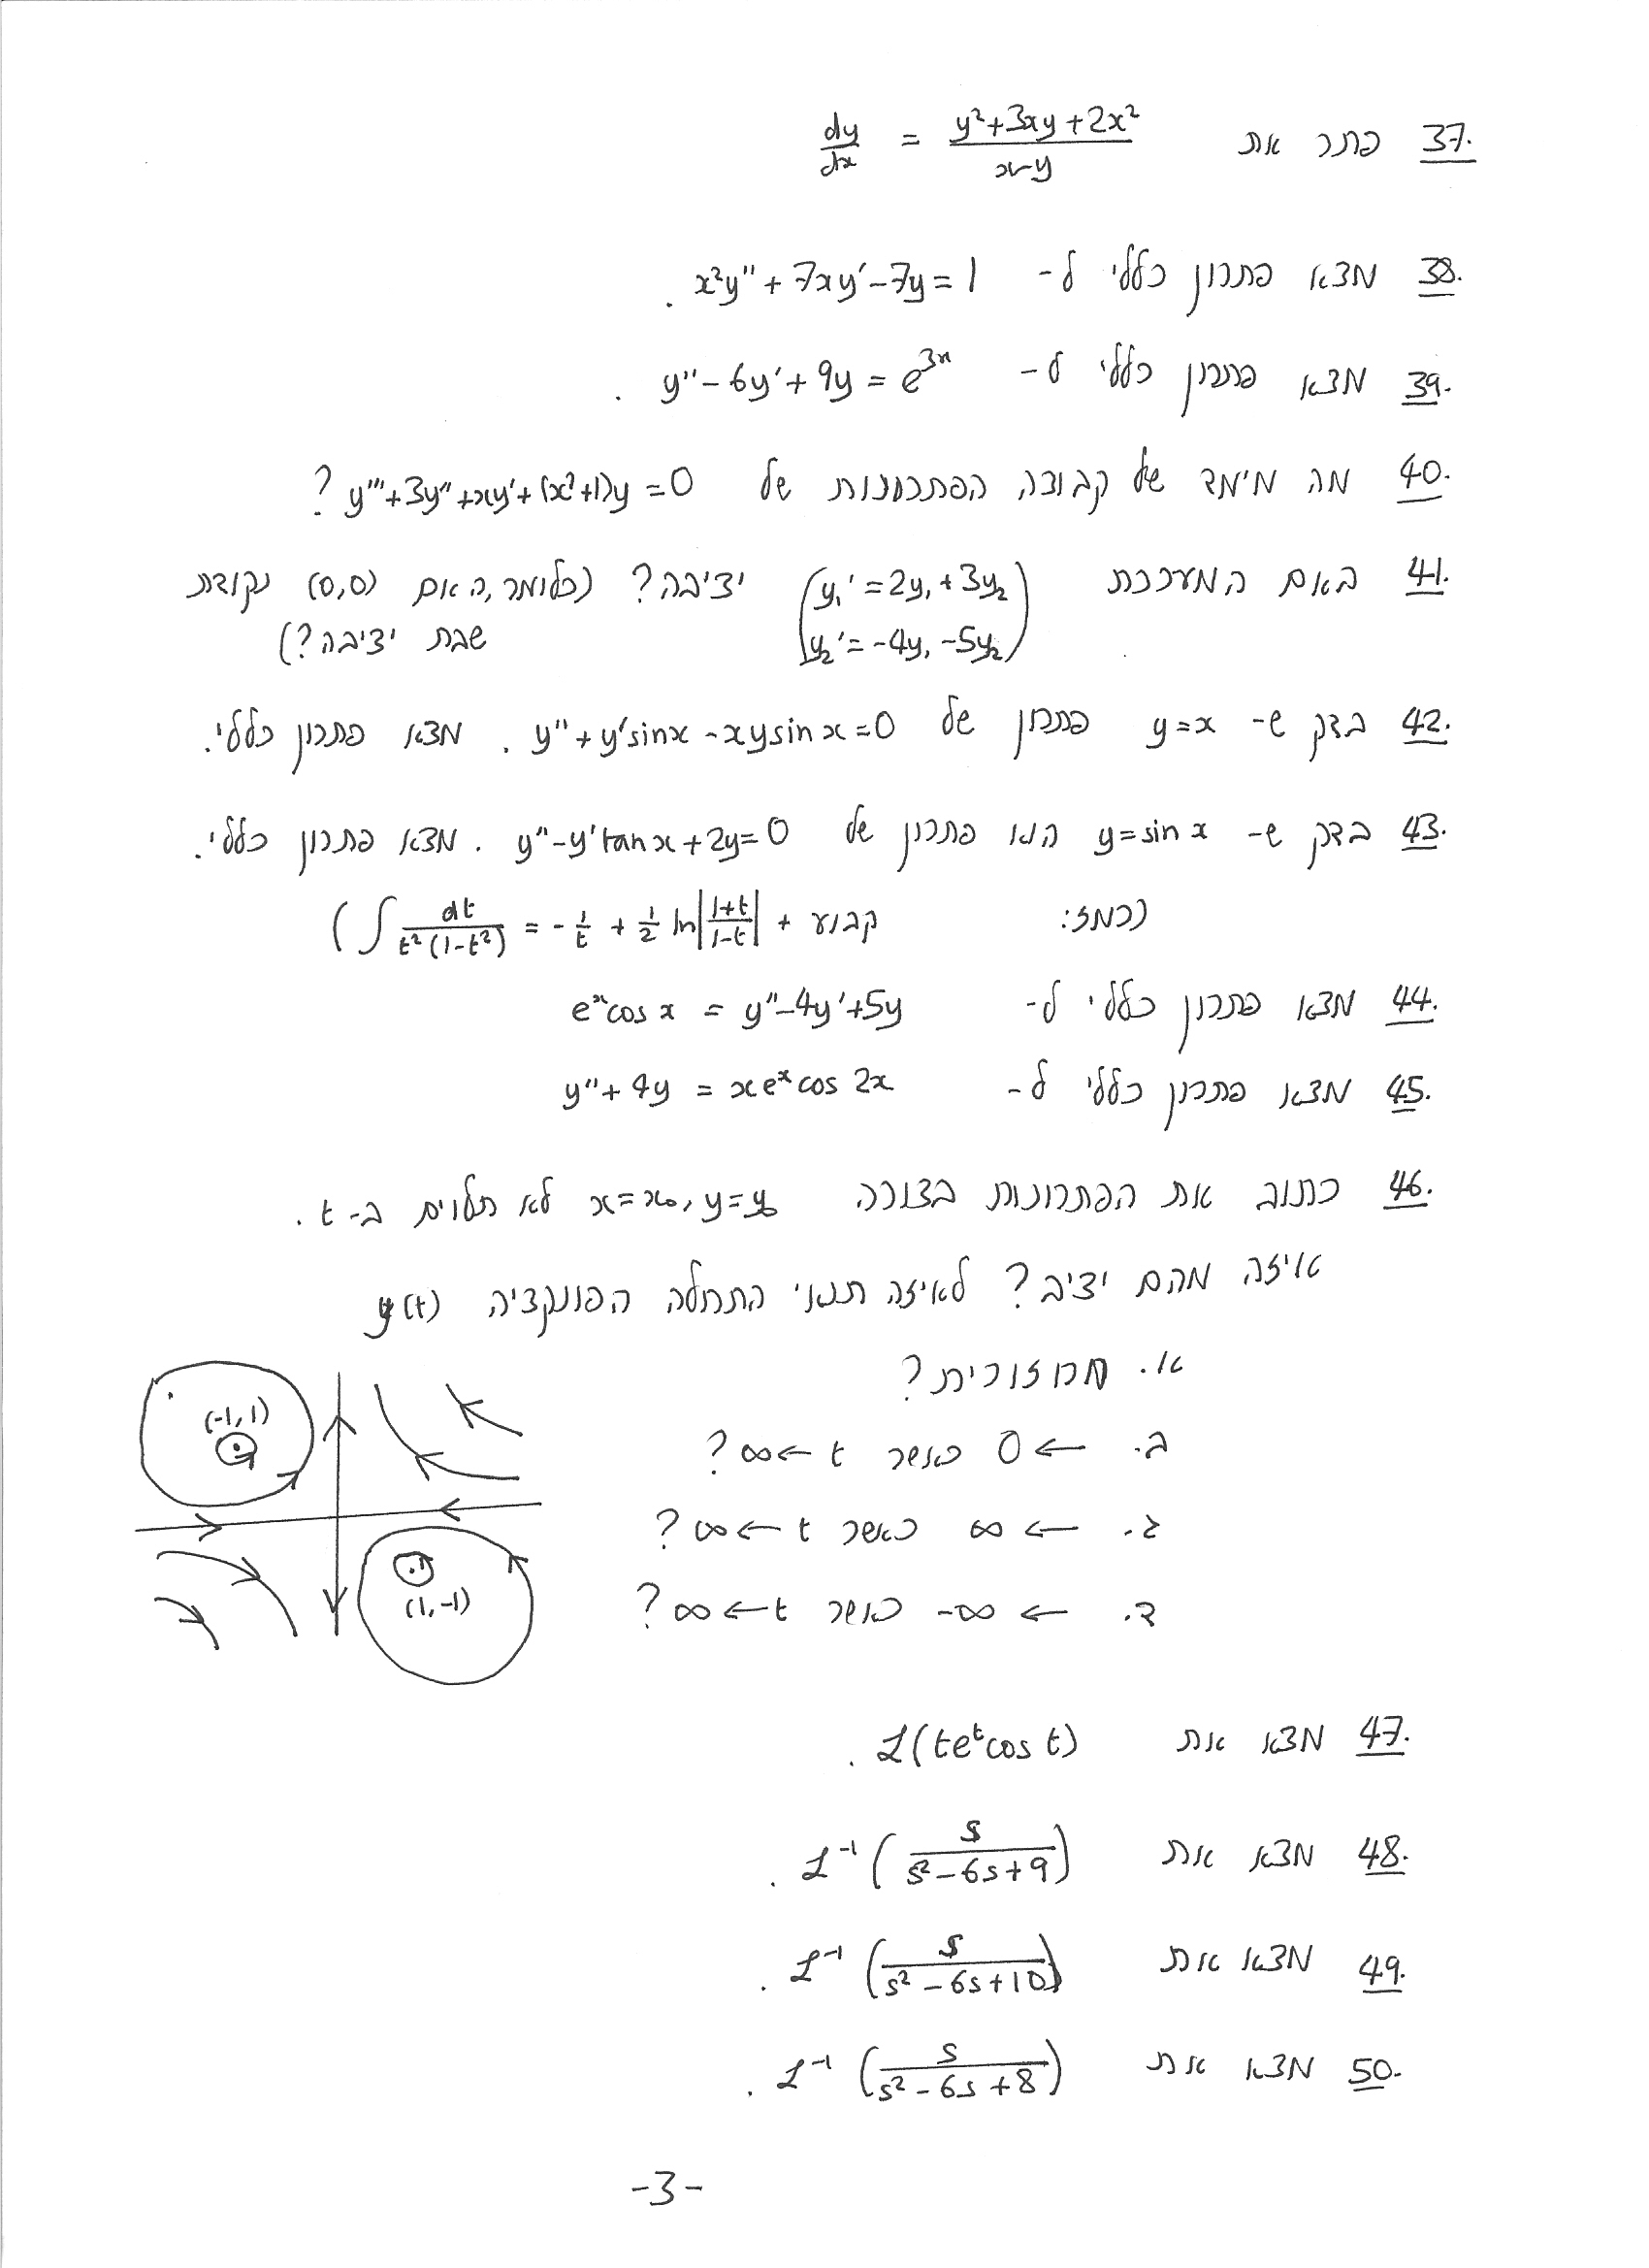 37. פתר את dy/dx = (y²+3xy+2x²)/(x-y)
38. מצא פתרון כללי ל- x²y''+7xy'-7y=1 .
39. מצא פתרון כללי ל- y''-6y'+9y = e³ˣ .
40. מה מימד של קבוצה הפתרונות של y'''+3y''+xy'+(x²+1)y=0 ?
41. האם המערכת (y₁'=2y₁+3y₂ יציבה? (כלומר, האם (0,0) נקודת
y₂'=-4y₁-5y₂) שבת יציבה?)
42. בדק ש- y=x פתרון של y''+y'sinx-xysinx=0 . מצא פתרון כללי.
43. בדק ש- y=sin x הוא פתרון של y''-y'tanx+2y=0 . מצא פתרון כללי.
(רמז: ∫ dt/(t²(1-t²)) = -1/t + 1/2 ln|(1+t)/(1-t)| + קבוע)
44. מצא פתרון כללי ל- eˣcos x = y''-4y'+5y
45. מצא פתרון כללי ל- y''+4y = xeˣcos 2x
46. כתוב את הפתרונות בצורה x=x₀, y=y₀ לא תלוים ב- t .
איזה מהם יציב? לאיזה תנאי התחלה הפונקציה y(t)
א. מחזורית?
ב. → 0 כאשר t→∞?
ג. → ∞ כאשר t→∞?
ד. → -∞ כאשר t→∞?
(-1,1)
(1,-1)
47. מצא את ℒ(teᵗcos t) .
48. מצא את ℒ⁻¹(s/(s²-6s+9)) .
49. מצא את ℒ⁻¹(s/(s²-6s+10)) .
50. מצא את ℒ⁻¹(s/(s²-6s+8)) .
-3-